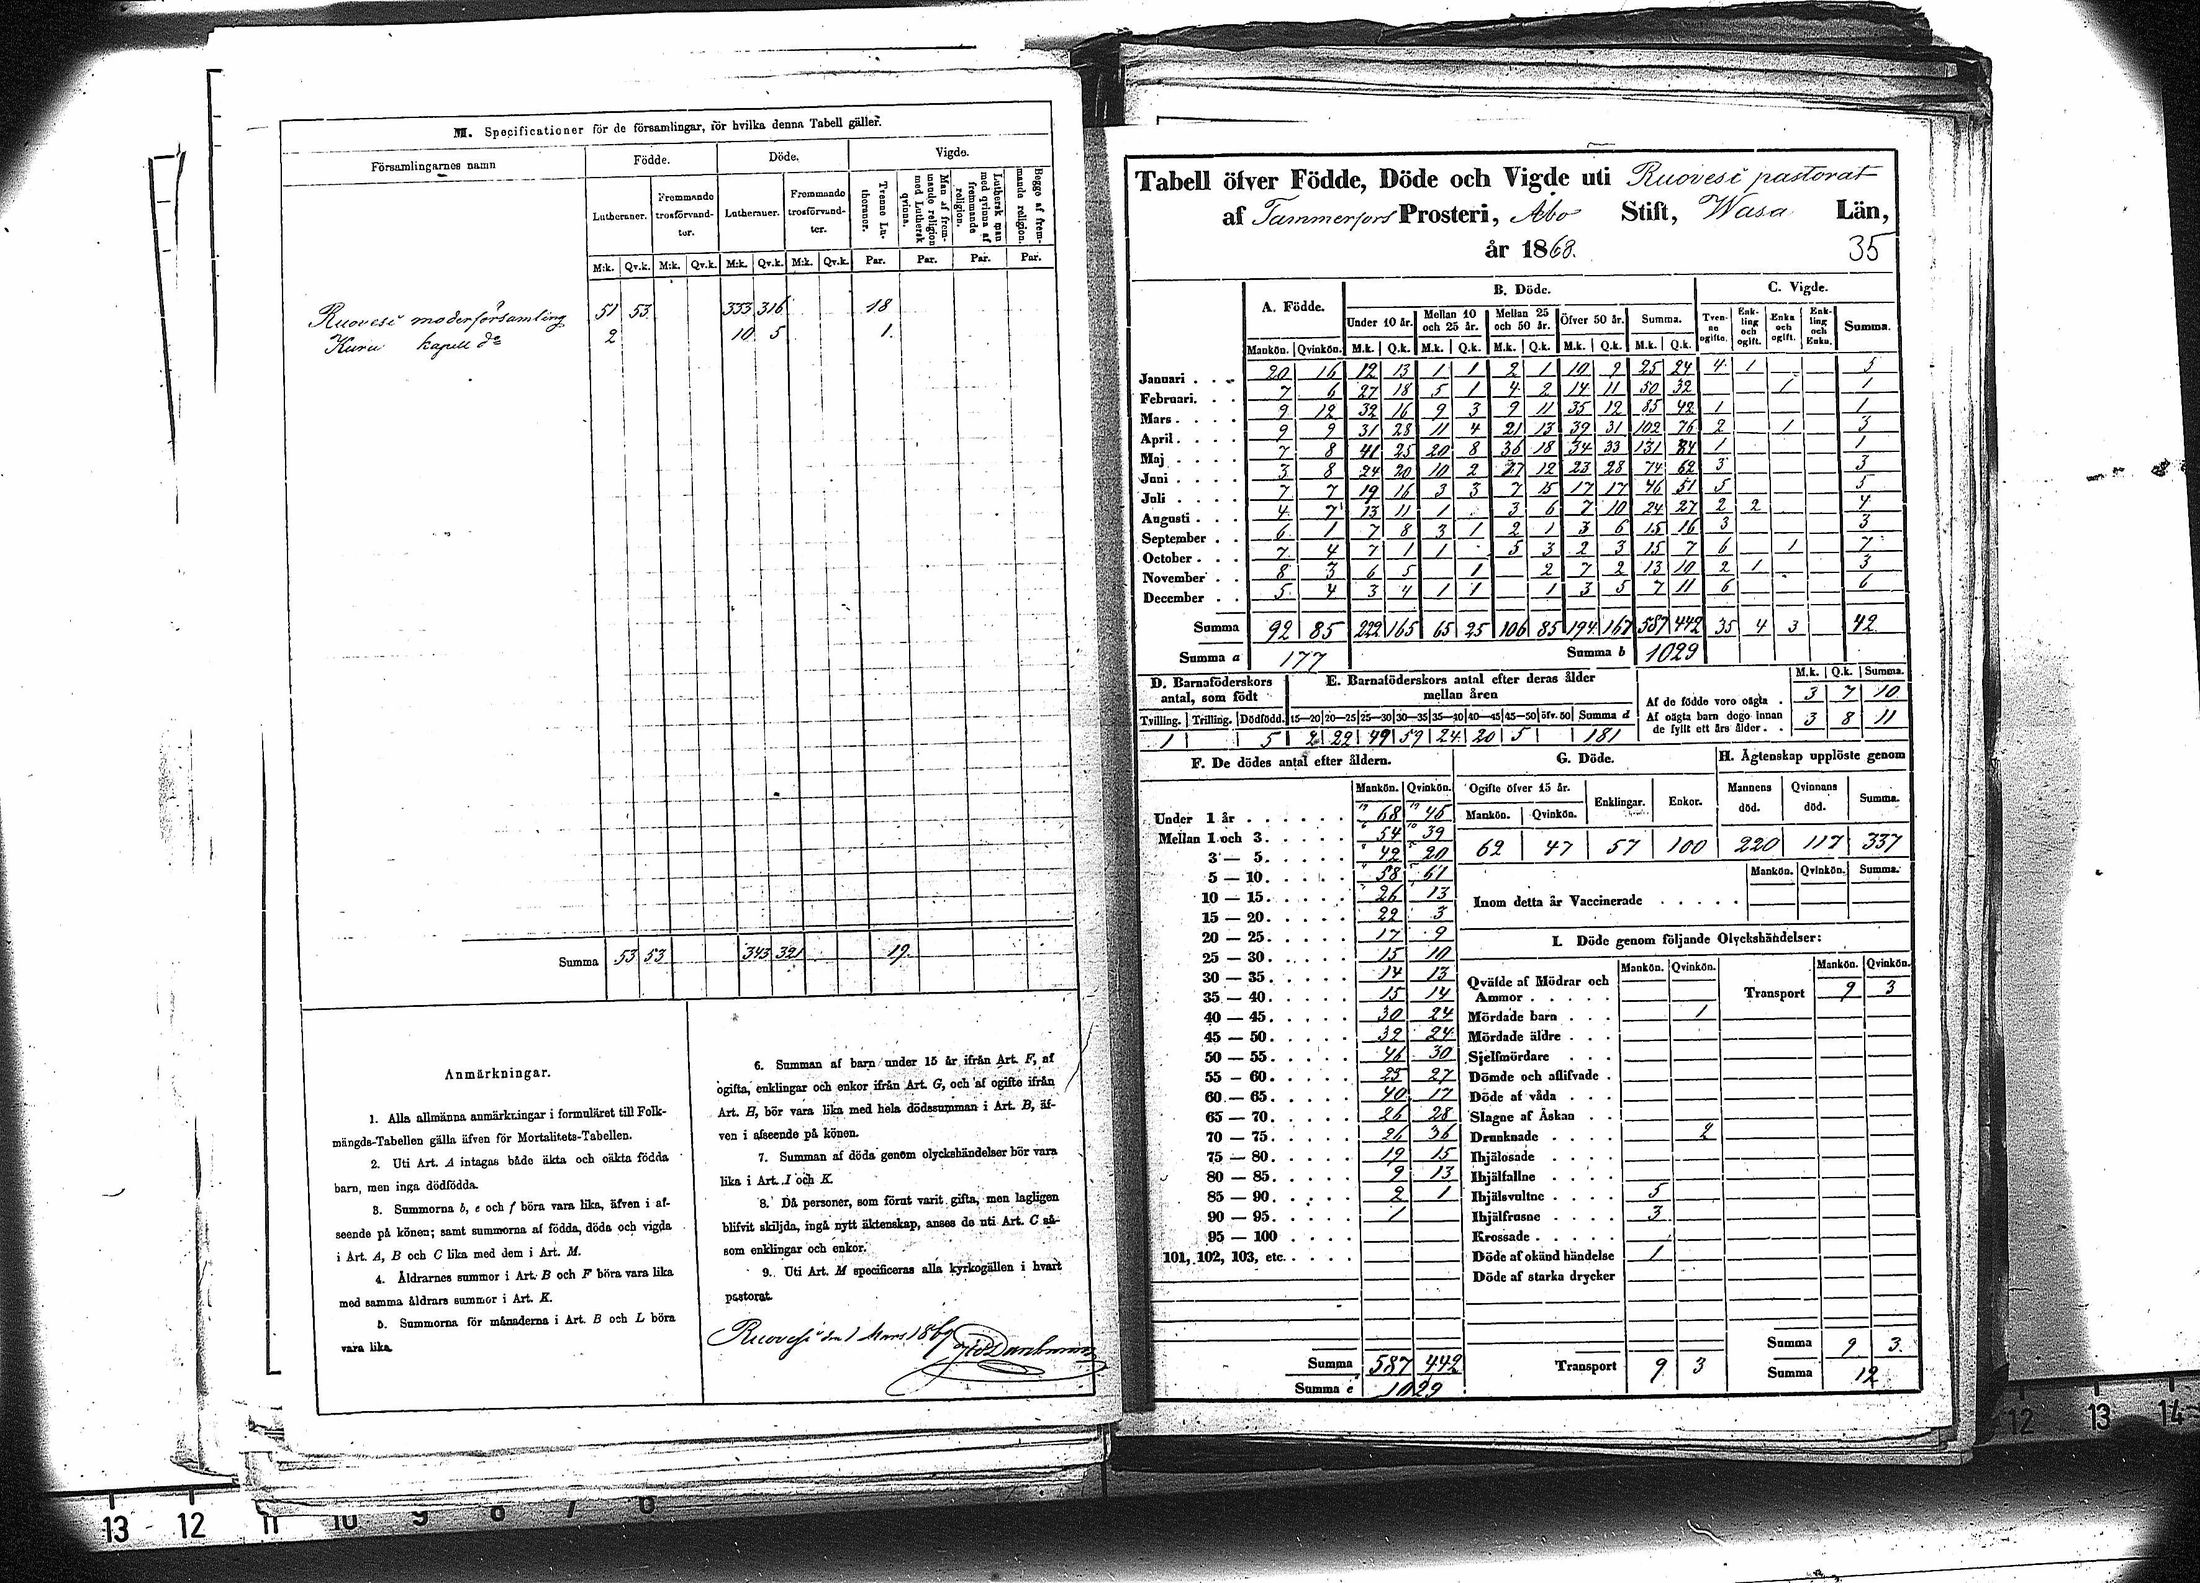 M. Specificationer för de församlingar, för hvilka denna Tabell gäller.
Församlingarnes namn
Födde. Döde. Vigde.
Lutheraner. Fremmande trosförvandter. Lutherauer. Fremmande trosförvandter. Tvenne Lutheraner. Man af fremmande religion med Luthersk qvinna. Luthersk man med qvinna af fremmande religion. Begge af fremmande religion.
M:k. Qv.k. M:k. Qv.k. M:k. Qv.k. M:k. Qv.k. Par. Par. Par. Par.
Ruovesi moderförsamling 51 53 333 316 18
Kuru kapell do 2 10 5 1.
Summa 53 53 343 321 19.
Anmärkningar.
1. Alla allmänna anmärkningar i formuläret till Folk-
mängds-Tabellen gälla äfven för Mortalitets-Tabellen.
2. Uti Art. A intagas både äkta och oäkta födda
barn, men inga dödfödda.
3. Summorna b, e och f böra vara lika, äfven i af-
seende på könen; samt summorna af födda, döda och vigda
i Art. A, B och C lika med dem i Art. M.
4. Åldrarnes summor i Art. B och F böra vara lika
med samma åldrars summor i Art. K.
5. Summorna för månaderna i Art. B och L böra
vara lika.
6. Summan af barn under 15 år ifrån Art. F, af
ogifta, enklingar och enkor ifrån Art. G, och af ogifte ifrån
Art. H, bör vara lika med hela dödssumman i Art. B, äf-
ven i afseende på könen.
7. Summan af döda genom olyckshändelser bör vara
lika i Art. I och K.
8. Då personer, som förut varit gifta, men lagligen
blifvit skiljda, ingå nytt äktenskap, anses de uti Art. C så-
som enklingar och enkor.
9. Uti Art. M specificeras alla kyrkogällen i hvart
pastorat.
Ruovesi den 1 Mars 1869
Tabell öfver Födde, Döde och Vigde uti Ruovesi pastorat
af Tammerfors Prosteri, Åbo Stift, Wasa Län,
år 1868. 35
A. Födde. B. Döde. C. Vigde.
Under 10 år. Mellan 10 och 25 år. Mellan 25 och 50 år. Öfver 50 år. Summa. Tvenne ogifta. Enkling och ogift. Enka och ogift. Enkling och Enka. Summa.
Mankön. Qvinkön. M.k. Q.k. M.k. Q.k. M.k. Q.k. M.k. Q.k. M.k. Q.k.
Januari 20 16 12 13 1 1 2 1 10 9 25 24 4 1 5
Februari 7 6 27 18 5 1 4 2 14 11 50 32 1 1
Mars 9 12 32 16 9 3 9 11 35 12 85 42 1 1
April 9 9 31 28 11 4 21 13 39 31 102 76 2 1 3
Maj 7 8 41 25 20 8 36 18 34 33 131 84 1 1
Juni 3 8 24 20 10 2 17 12 23 28 74 62 3 3
Juli 7 7 19 16 3 3 7 15 17 17 46 51 5 5
Augusti 4 7 13 11 1 3 6 7 10 24 27 2 2 4
September 6 1 7 8 3 1 2 1 3 6 15 16 3 3
October 7 4 7 1 1 5 3 2 3 15 7 6 1 7
November 8 3 6 5 1 2 7 2 13 10 2 1 3
December 5 4 3 4 1 1 1 3 5 7 11 6 6
Summa 92 85 222 165 65 25 106 85 194 167 587 442 35 4 3 42
Summa a 177 Summa b 1029
D. Barnaföderskors antal, som födt
Tvilling. Trilling. Dödfödd.
1 5
E. Barnaföderskors antal efter deras ålder mellan åren
15—20 20—25 25—30 30—35 35—40 40—45 45—50 öfv. 50 Summa d
2 22 49 59 24 20 5 181
M.k. Q.k. Summa.
Af de födde voro oägta 3 7 10
Af oägta barn dogo innan de fyllt ett års ålder 3 8 11
F. De dödes antal efter åldern.
Mankön. Qvinkön.
Under 1 år 68 45
Mellan 1 och 3 54 39
3 — 5 42 20
5 — 10 58 61
10 — 15 26 13
15 — 20 22 3
20 — 25 17 9
25 — 30 15 10
30 — 35 14 13
35 — 40 15 14
40 — 45 30 24
45 — 50 32 24
50 — 55 46 30
55 — 60 25 27
60 — 65 40 17
65 — 70 26 28
70 — 75 26 36
75 — 80 19 15
80 — 85 9 13
85 — 90 2 1
90 — 95 1
95 — 100
101, 102, 103, etc.
Summa 587 442
Summa e 1029
G. Döde.
Ogifte öfver 15 år. Enklingar. Enkor.
Mankön. Qvinkön.
62 47 57 100
H. Ägtenskap upplöste genom
Mannens död. Qvinnans död. Summa.
220 117 337
Mankön. Qvinkön. Summa.
Inom detta år Vaccinerade
I. Döde genom följande Olyckshändelser:
Mankön. Qvinkön. Mankön. Qvinkön.
Qväfde af Mödrar och Ammor Transport 9 3
Mördade barn 1
Mördade äldre
Sjelfmördare
Dömde och aflifvade
Döde af våda
Slagne af Åskan
Drunknade 2
Ihjälosade
Ihjälfallne
Ihjälsvultne 5
Ihjälfrusne 3
Krossade
Döde af okänd händelse 1
Döde af starka drycker
Summa 9 3
Transport 9 3 Summa 12
13 12 11 10 9 8 7 6
12 13 14